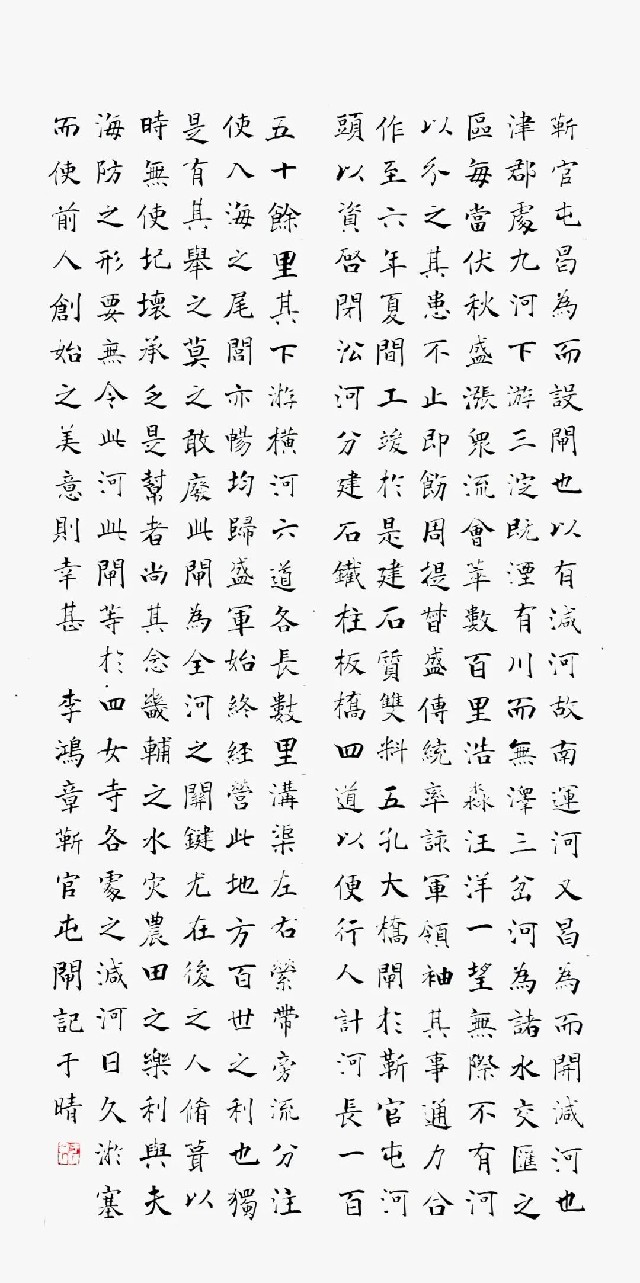 靳官屯曷為而設閘也以有減河故南運河又曷為而開減河也
津郡處九河下游三淀既湮有川而無澤三岔河為諸水交匯之
區每當伏秋盛漲眾流會萃數百里浩淼汪洋一望無際不有河
以分之其患不止即飭周提督盛傳統率諒軍領袖其事通力合
作至六年夏間工竣於是建石質雙料五孔大橋閘於靳官屯河
頭以資啓閉沿河分建石鐵柱板橋四道以便行人計河長一百
五十餘里其下游橫河六道各長數里溝渠左右縈帶旁流分注
使入海之尾閭亦暢均歸盛軍始終經營此地方百世之利也獨
是有其舉之莫之敢廢此閘為全河之關鍵尤在後之人脩葺以
時無使圮壞承乏是幫者尚其念畿輔之水灾農田之樂利與夫
海防之形要無令此河此閘等於四女寺各處之減河日久淤塞
而使前人創始之美意則幸甚 李鴻章靳官屯閘記于晴